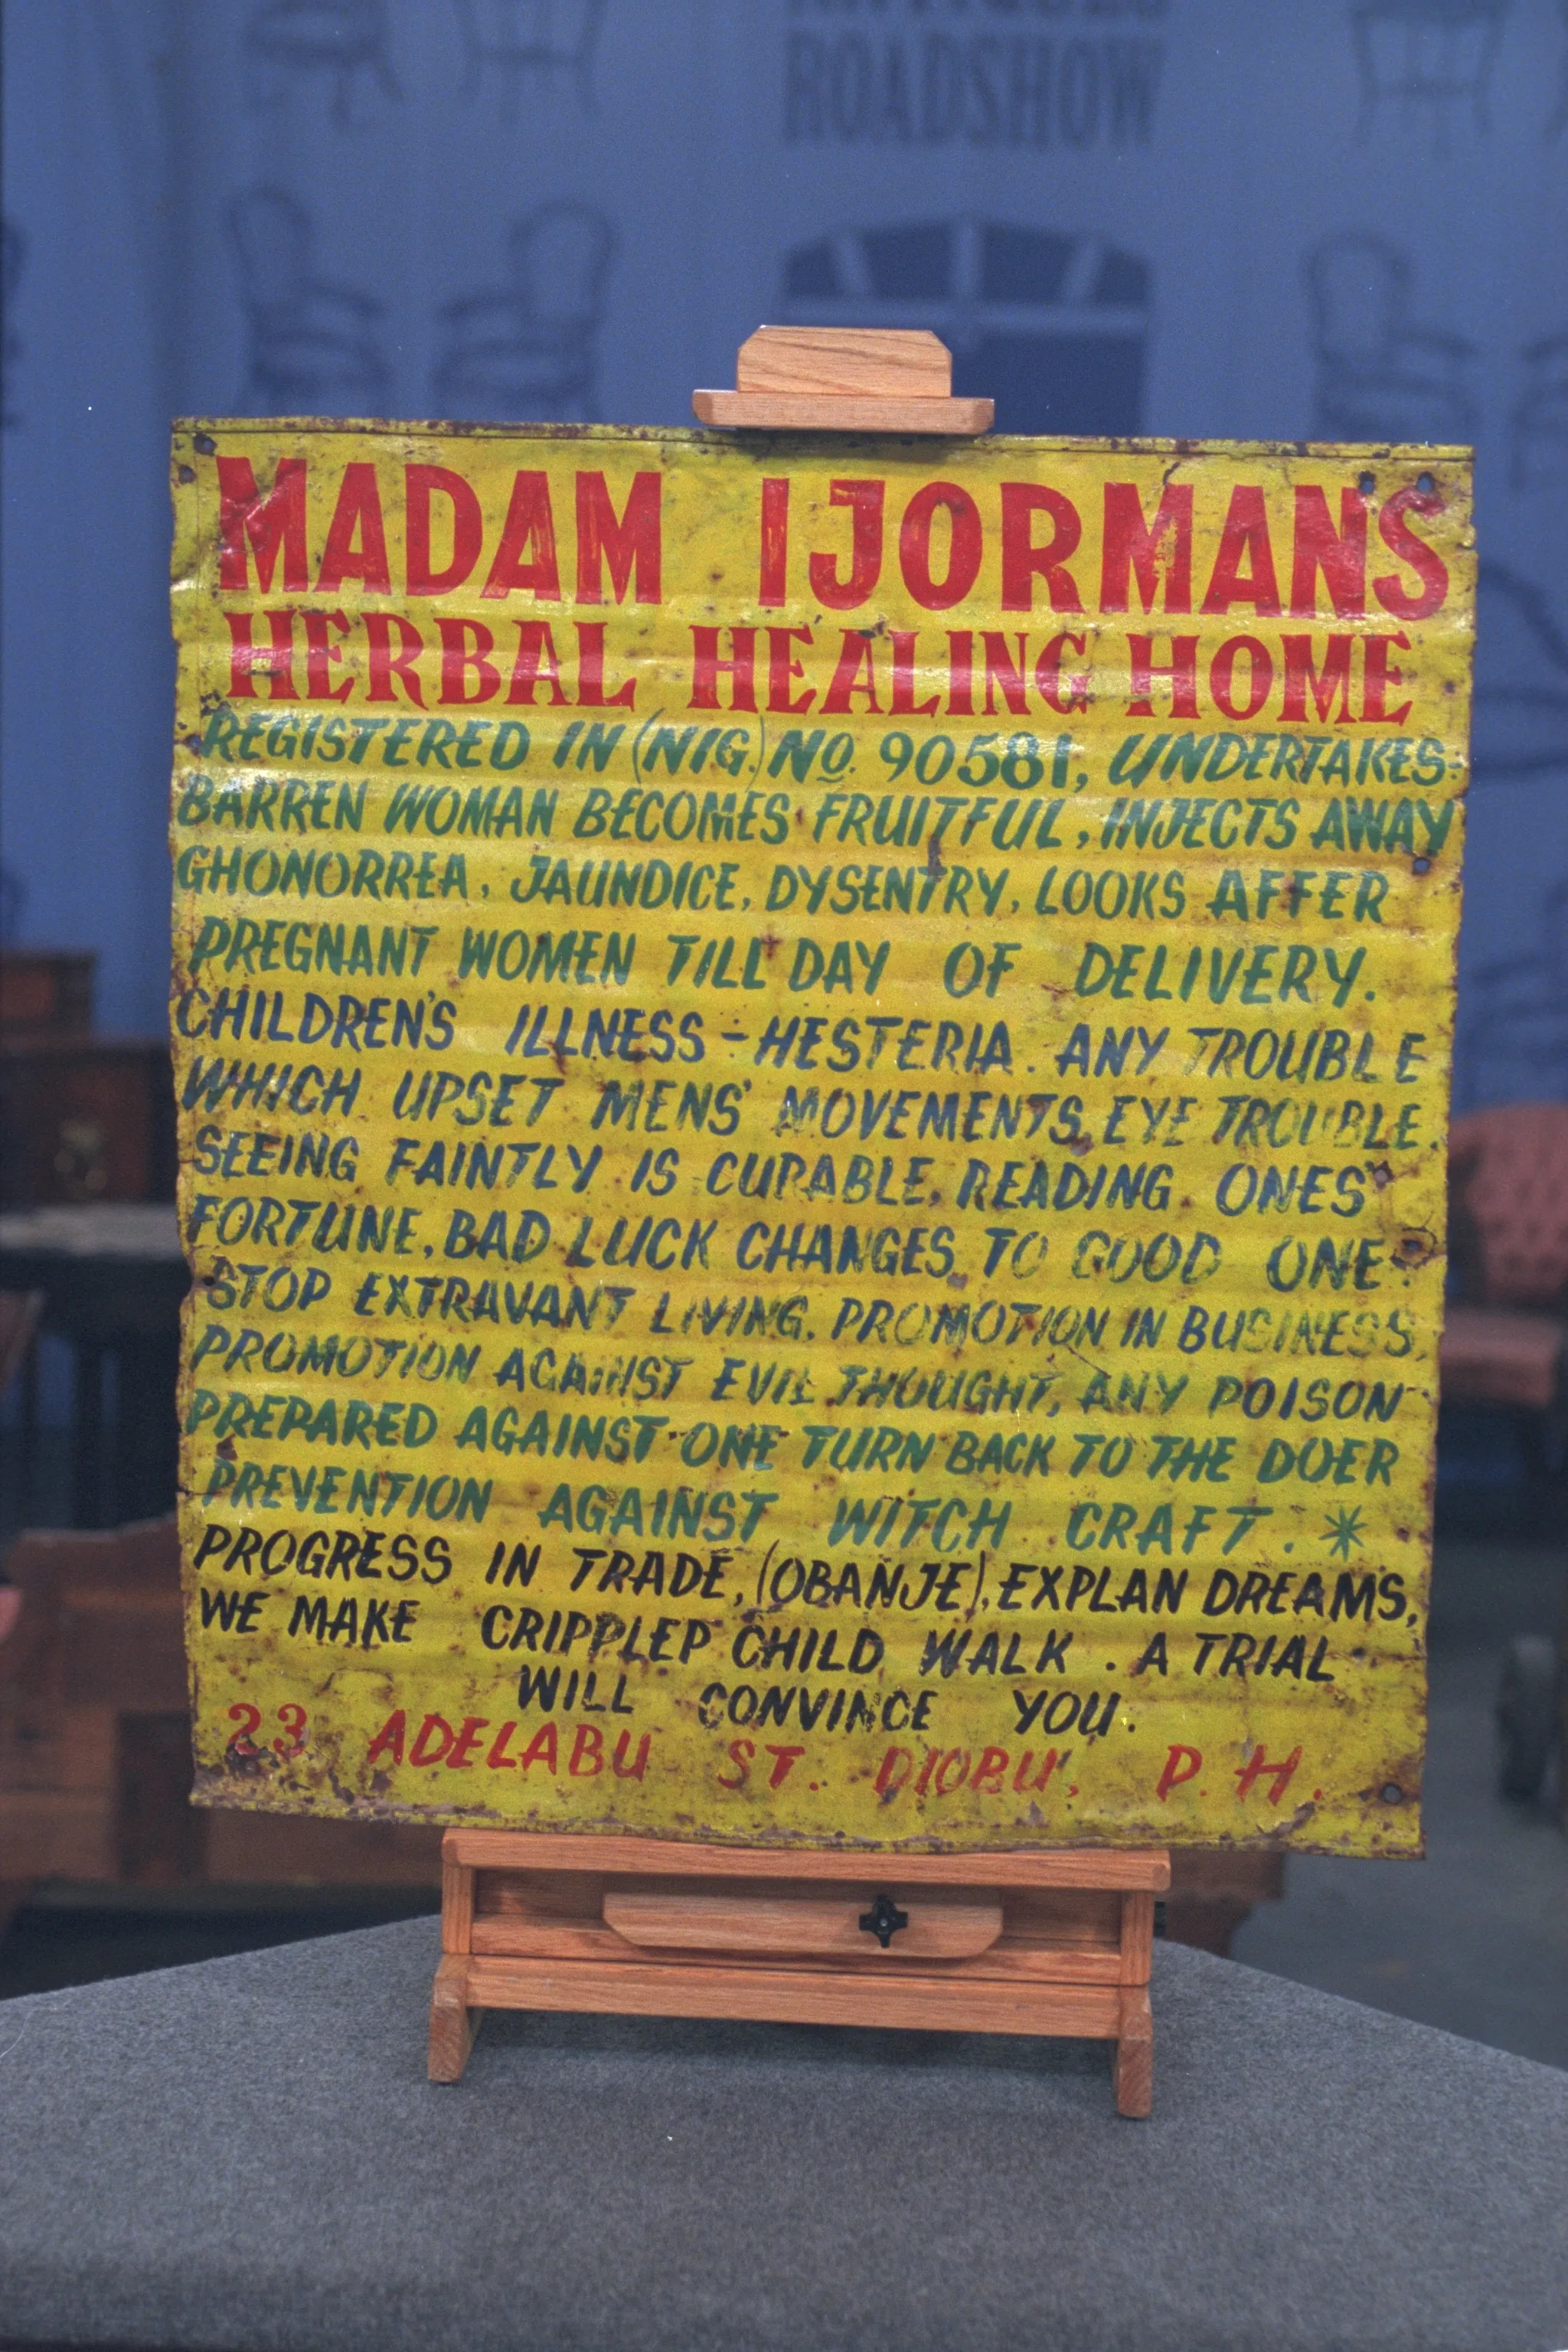 ROADSHOW
MADAM IJORMANS
HERBAL HEALING HOME
REGISTERED IN (NIG.) NO. 90581, UNDERTAKES-
BARREN WOMAN BECOMES FRUITFUL, INJECTS AWAY
GHONORREA, JAUNDICE, DYSENTRY, LOOKS AFFER
PREGNANT WOMEN TILL DAY OF DELIVERY.
CHILDREN'S ILLNESS - HESTERIA. ANY TROUBLE
WHICH UPSET MENS' MOVEMENTS, EYE TROUBLE.
SEEING FAINTLY IS CURABLE, READING ONES'
FORTUNE, BAD LUCK CHANGES TO GOOD ONE.
STOP EXTRAVANT LIVING. PROMOTION IN BUSINESS,
PROMOTION AGAINST EVIL THOUGHT, ANY POISON
PREPARED AGAINST ONE TURN BACK TO THE DOER
PREVENTION AGAINST WITCH CRAFT. *
PROGRESS IN TRADE, (OBANJE), EXPLAN DREAMS,
WE MAKE CRIPPLEP CHILD WALK. A TRIAL
WILL CONVINCE YOU.
23 ADELABU ST. DIOBU, P.H.